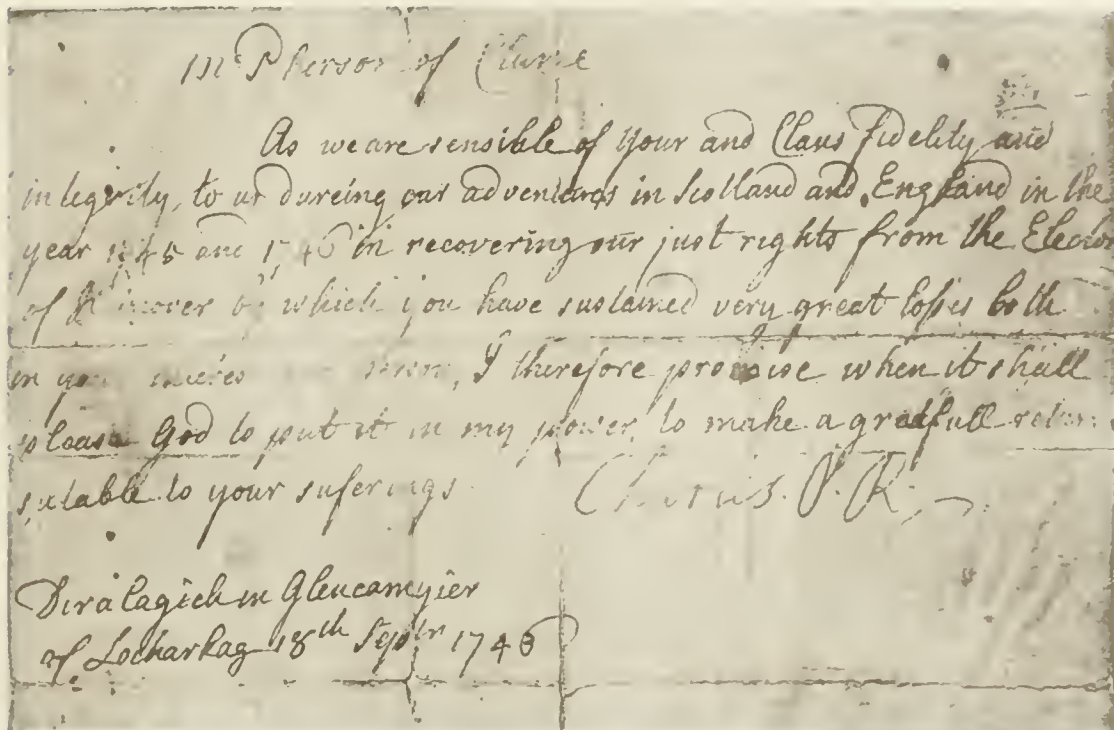 McPherson of Clunie
As we are sensible of your and Clans fidelity and
integrity, to us dureing our adventures in Scotland and England in the
year 1745 and 1746 in recovering our just rights from the Elector
of Hanover by which you have sustained very great losses both
in your, I therefore promise when it shall
please God to put it in my power, to make a gratfull return
sutable to your suferings.
Charles. P. R.
Diralagich in Glencamyier
of Locharkag 18th Septr 1746